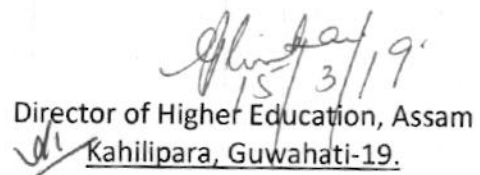 15/3/19.
Director of Higher Education, Assam
Kahilipara, Guwahati-19.